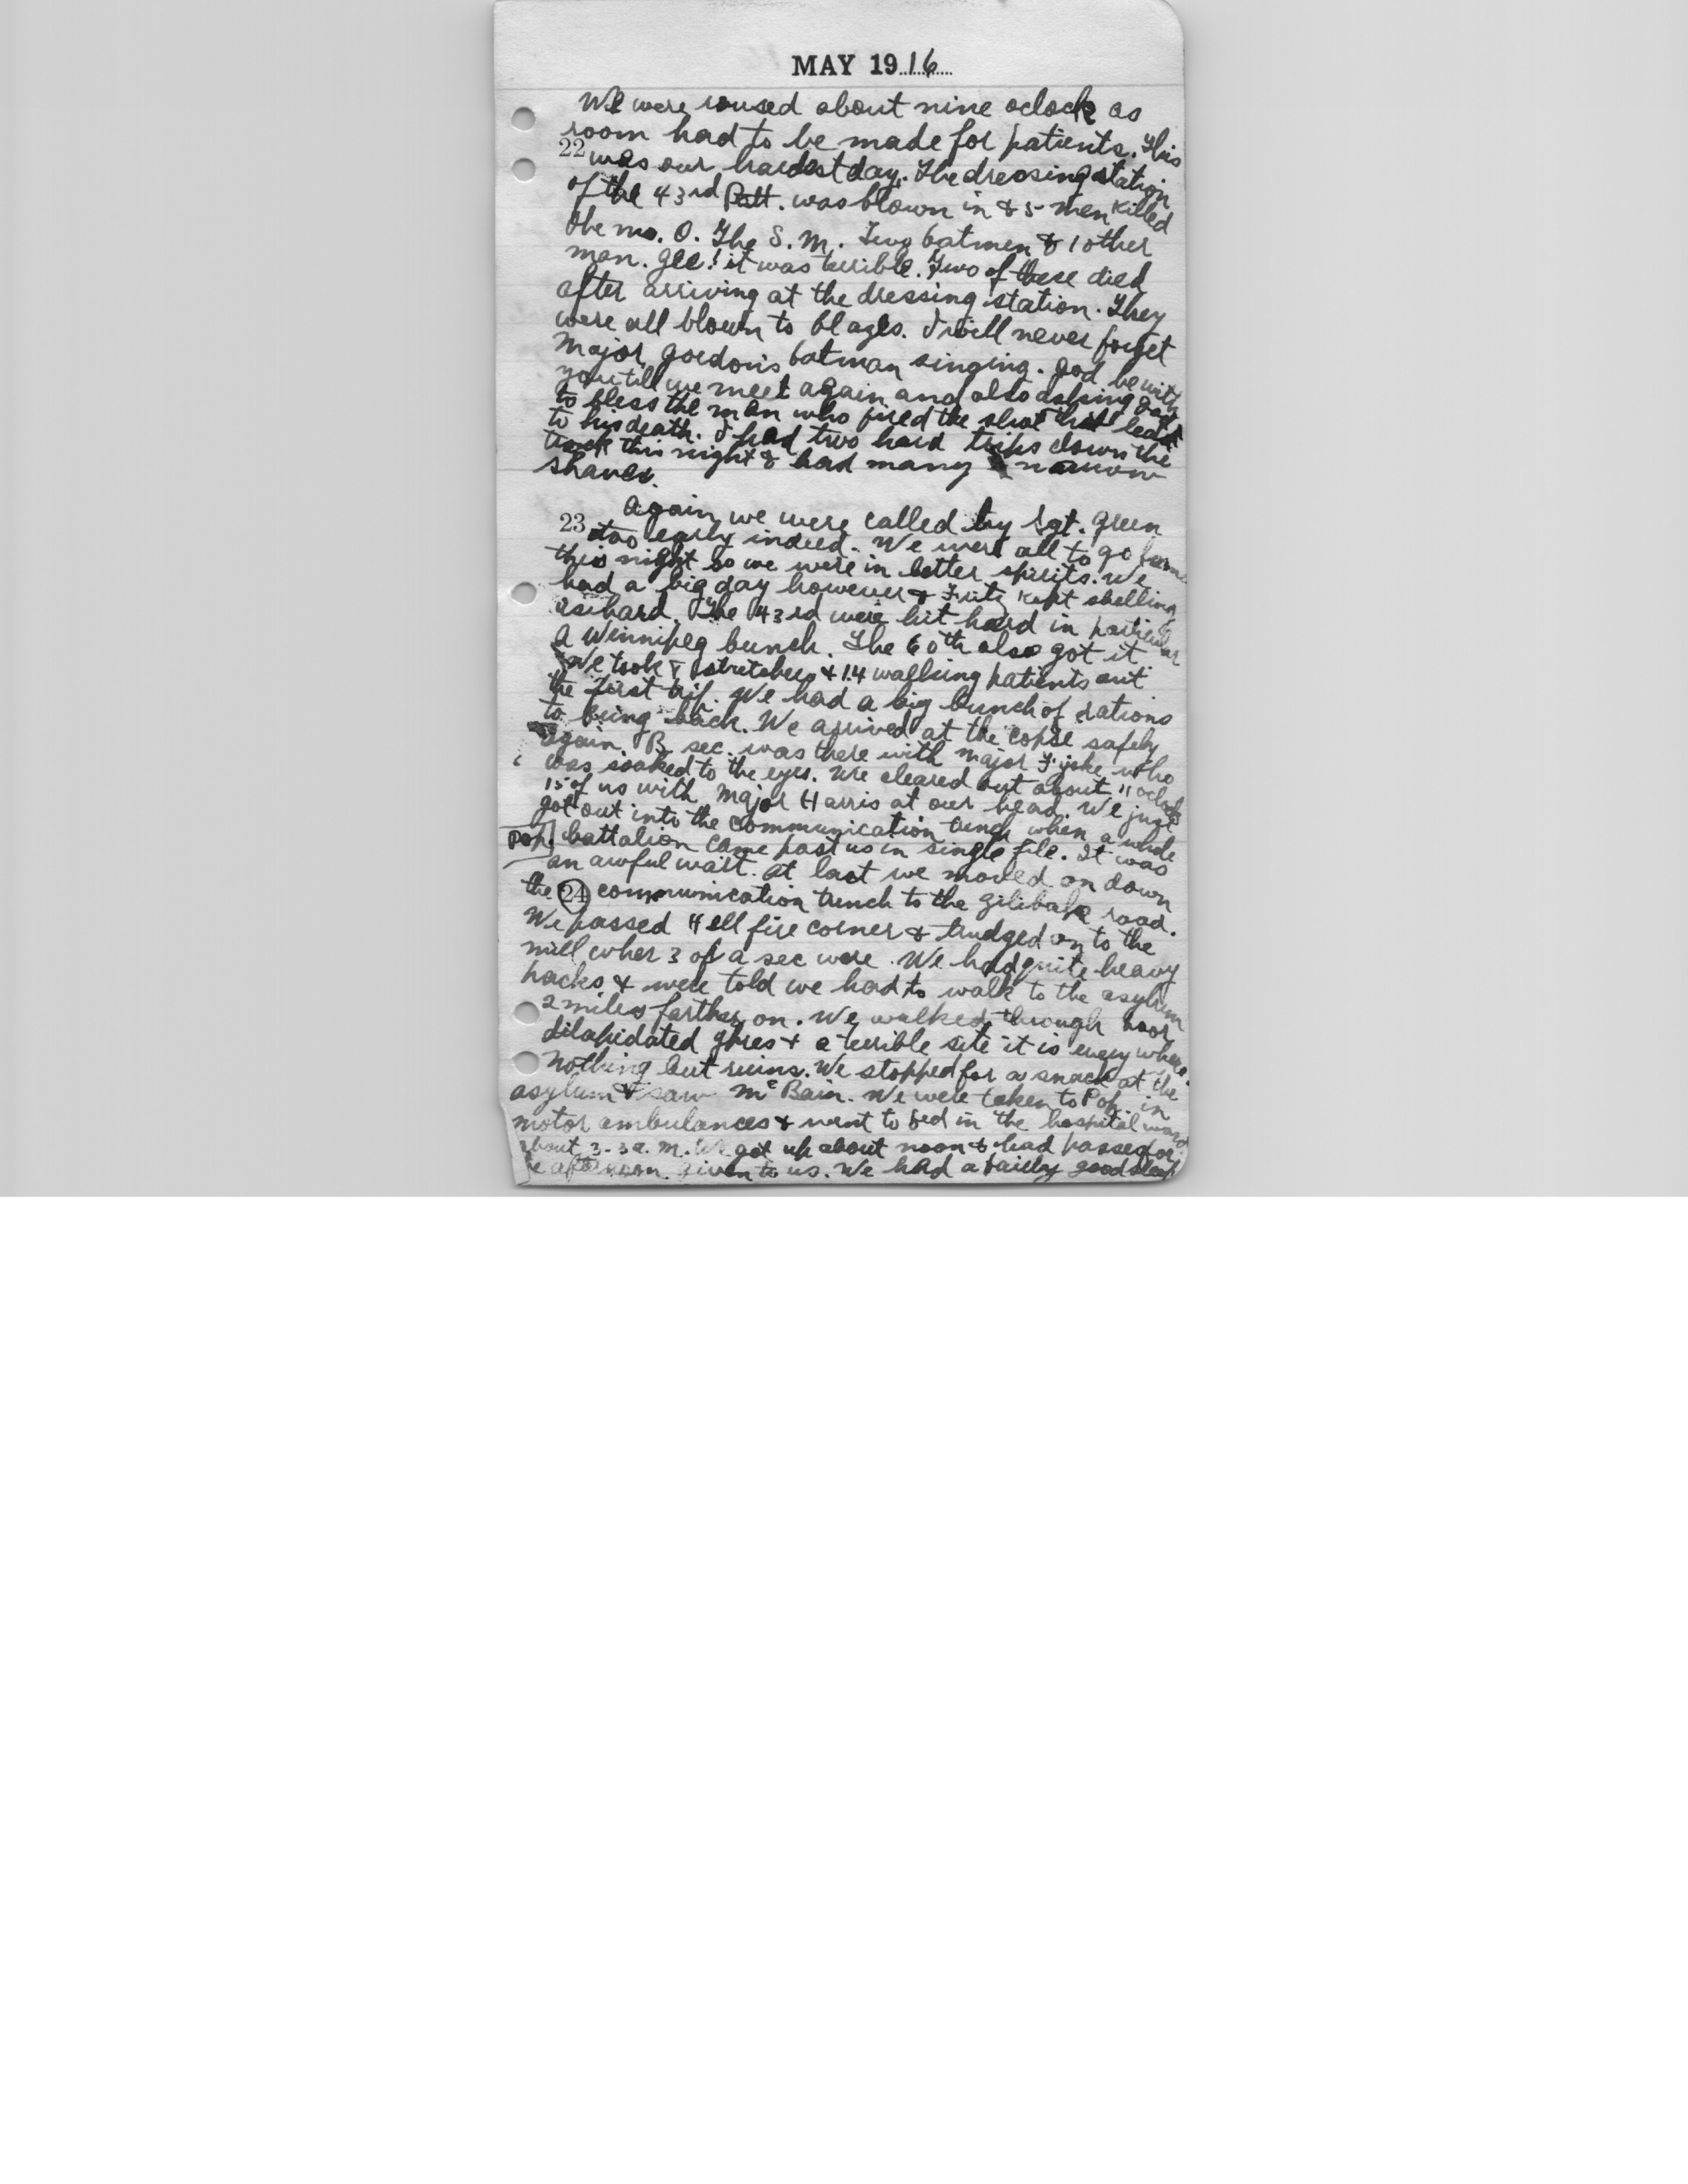 MAY 1916
We were roused about nine oclock as
room had to be made for patients. This
22 was our hardest day. The dressing station
of the 43rd Batt. was blown in & 5 men killed
the M. O. The S. M. Two batmen & 1 other
man. Gee! it was terrible. Two of these died
after arriving at the dressing station. They
were all blown to blazes. I will never forget
Major Gordon's batman singing. God be with
you till we meet again and also asking God
to bless the man who fired the shot that lead
to his death. I had two hard trips down the
track this night & had many narrow
shaves.
Again we were called by Sgt. Green
23 too early indeed. We were all to go
this night so we were in better spirits. We
had a big day however & Fritz kept shelling
us hard. The 43rd were hit hard in particular
A Winnipeg bunch. The 60th also got it
We took 8 stretchers & 14 walking patients out
the first trip. We had a big bunch of rations
to bring back. We arrived at the copse safely
again. B sec. was there with Major who
was soaked to the eyes. We cleared out about 11 oclock
15 of us with Major Harris at our head. We just
got out into the communication trench when a whole
Pop. battalion came past us in single file. It was
an awful wait. At last we moved on down
the 24 communication trench to the road.
We passed Hell fire corner & trudged on to the
mill wher 3 of a sec were. We had quite heavy
packs & were told we had to walk to the asylum
2 miles farther on. We walked through poor
dilapidated & a terrible site it is every where.
Nothing but ruins. We stopped for a snack at the
asylum & saw McBain. We were taken to Pop. in
motor ambulances & went to bed in the hospital ward
about 3-3 a.m. We got up about noon & had passes for
afternoon given to us. We had a fairly good sleep